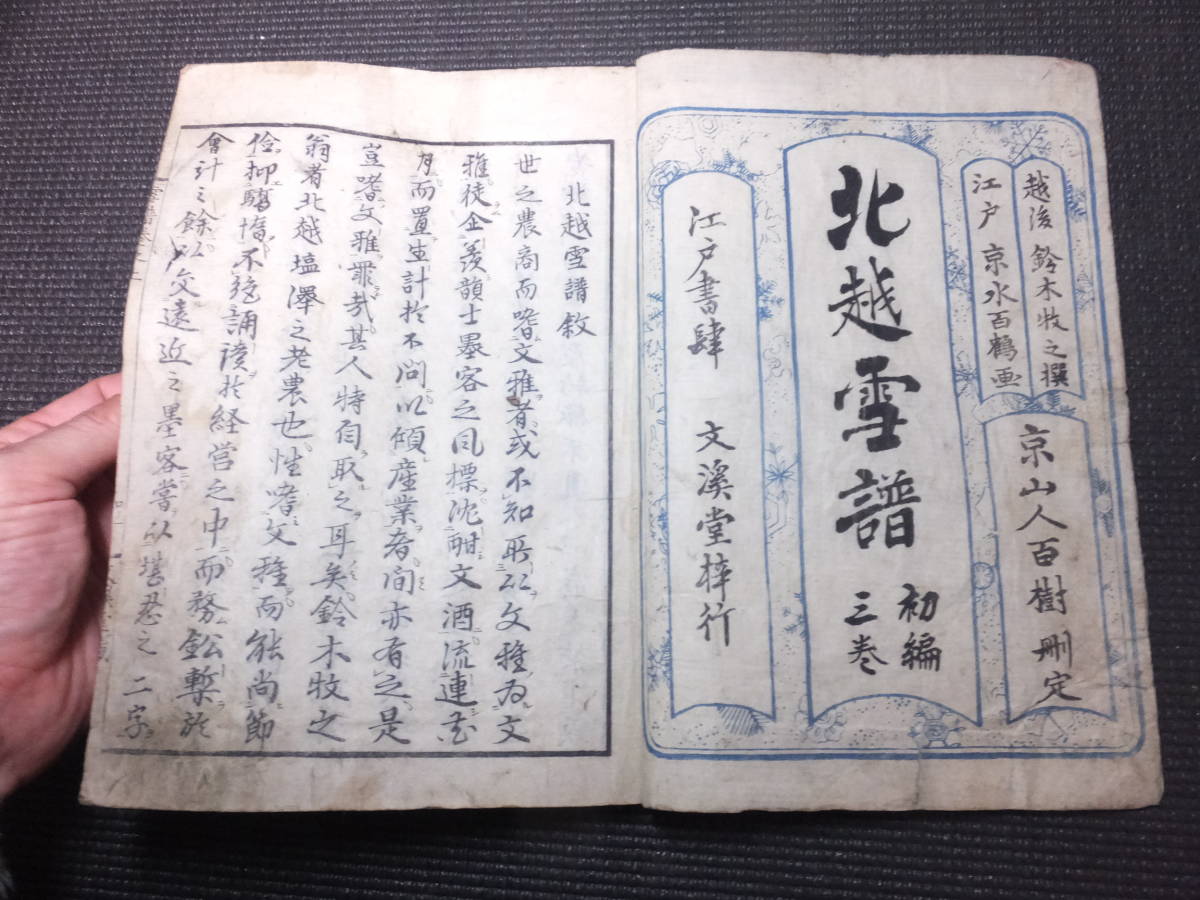 越後 鈴木牧之撰
江戸 京水百鶴画
京山人百樹刪定
北越雪譜
初編
三巻
江戸書肆 文溪堂梓行
北越雪譜敘
世之農商而嗜文雅者或不知所以文雅為文
雅徒企羨韻士墨客之風標沈酣文酒流連花
月而置生計於不問以傾産業者間亦有之是
豈嗜文雅罪哉其人特自取之耳矣鈴木牧之
翁者北越塩澤之老農也性嗜文雅而能尚節
儉抑驕惰不廃誦讀於経営之中而務鉛槧於
會計之餘以交遠近之墨客嘗以堪忍之二字